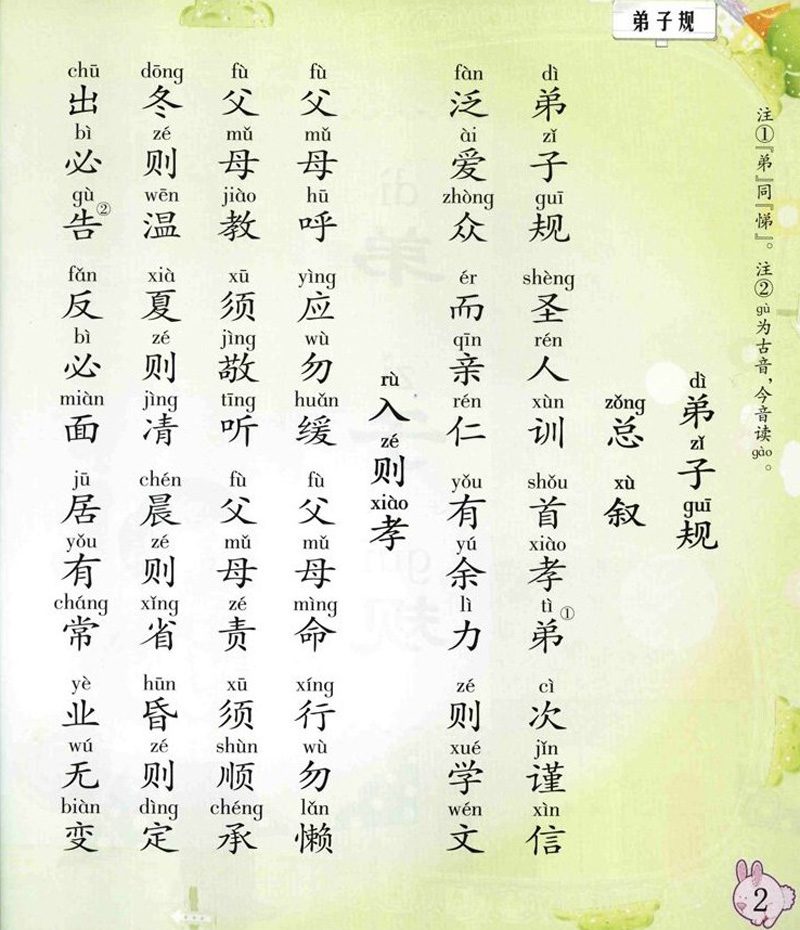 弟子规
注①『弟』同『悌』。注②gù为古音，今音读gào。
dì zǐ guī
弟子规
zǒng xù
总叙
dì zǐ guī shèng rén xùn shǒu xiào tì cì jǐn xìn
弟子规 圣人训 首孝弟① 次谨信
fàn ài zhòng ér qīn rén yǒu yú lì zé xué wén
泛爱众 而亲仁 有余力 则学文
rù zé xiào
入则孝
fù mǔ hū yìng wù huǎn fù mǔ mìng xíng wù lǎn
父母呼 应勿缓 父母命 行勿懒
fù mǔ jiào xū jìng tīng fù mǔ zé xū shùn chéng
父母教 须敬听 父母责 须顺承
dōng zé wēn xià zé jìng chén zé xǐng hūn zé dìng
冬则温 夏则凊 晨则省 昏则定
chū bì gù fǎn bì miàn jū yǒu cháng yè wú biàn
出必告② 反必面 居有常 业无变
2